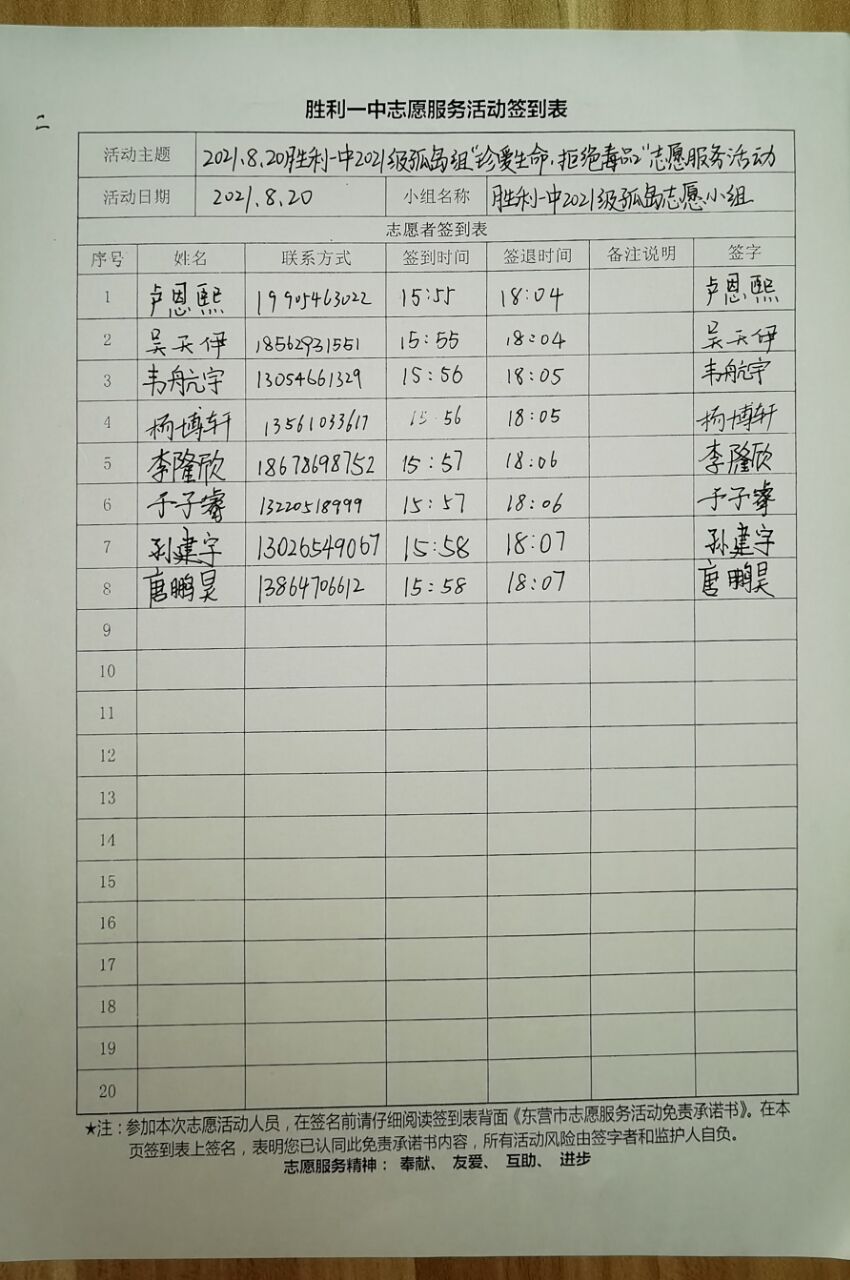 二
胜利一中志愿服务活动签到表
活动主题 2021.8.20胜利一中2021级孤岛组“珍爱生命,拒绝毒品”志愿服务活动
活动日期 2021.8.20 小组名称 胜利一中2021级孤岛志愿小组
志愿者签到表
序号 姓名 联系方式 签到时间 签退时间 备注说明 签字
1 卢恩熙 19905463022 15:55 18:04 卢恩熙
2 吴天伊 18562931551 15:55 18:04 吴天伊
3 韦航宇 13054661329 15:56 18:05 韦航宇
4 杨博轩 13561033617 15:56 18:05 杨博轩
5 李隆欣 18678698752 15:57 18:06 李隆欣
6 于子睿 13220518999 15:57 18:06 于子睿
7 孙建宇 13026549067 15:58 18:07 孙建宇
8 唐鹏昊 13864706612 15:58 18:07 唐鹏昊
9
10
11
12
13
14
15
16
17
18
19
20
★注：参加本次志愿活动人员，在签名前请仔细阅读签到表背面《东营市志愿服务活动免责承诺书》。在本
页签到表上签名，表明您已认同此免责承诺书内容，所有活动风险由签字者和监护人自负。
志愿服务精神： 奉献、 友爱、 互助、 进步